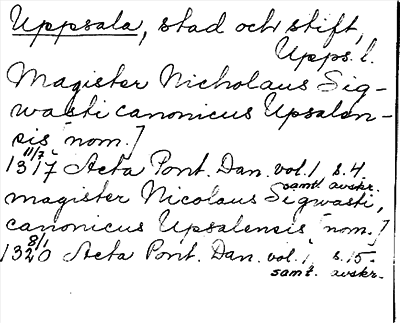 Uppsala, stad och stift,
Upps. l.
Magister Nicholaus Sig-
wasti canonicus Upsalen-
sis [nom.]
11/7 1317 Acta Pont. Dan. vol. 1, s. 4.
samt. avskr.
magister Nicolaus Segwasti,
canonicus Upsalensis [nom.]
8/1 1320 Acta Pont. Dan. vol. 1, s. 15.
samt. avskr.